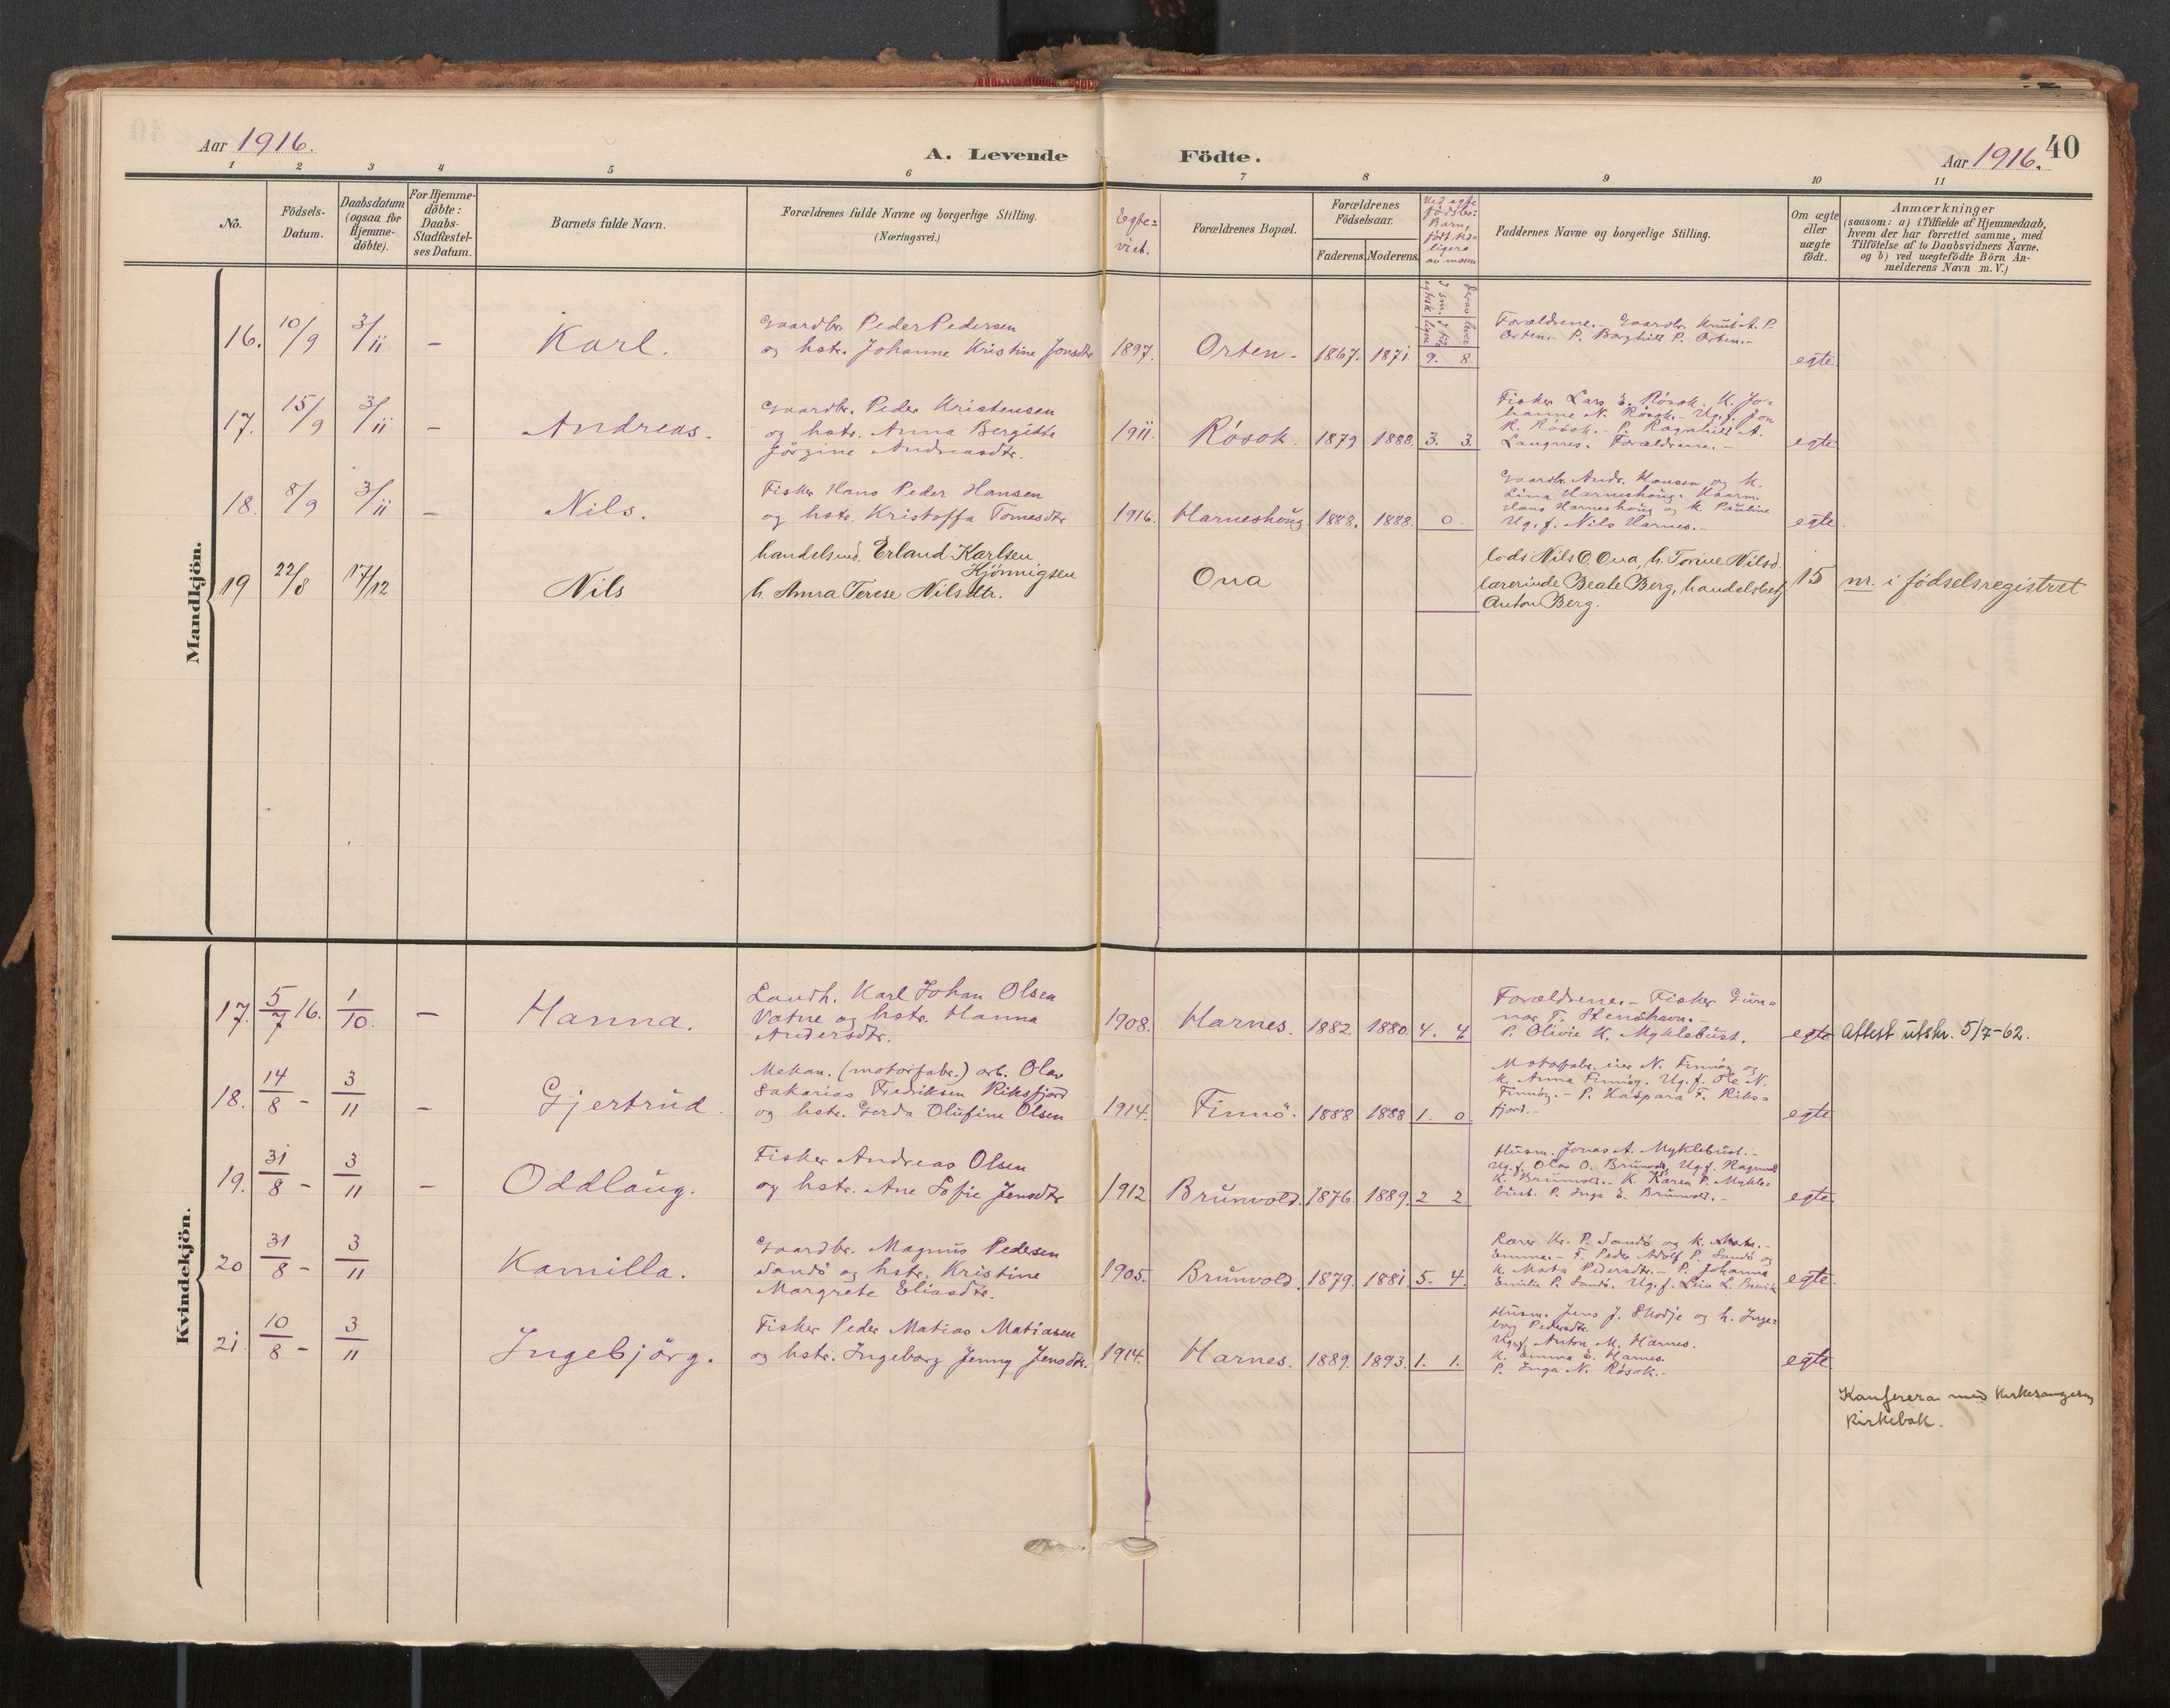 Aar 1916.
A. Levende Födte.
Aar 1916. 40
1 2 3 4 5 6 7 8 9 10 11
Nô.
Födsels-
Datum.
Daabsdatum
(ogsaa for
Hjemme-
döbte).
For Hjemme-
döbte:
Daabs-
Stadfæstel-
ses Datum.
Barnets fulde Navn.
Forældrenes fulde Navne og borgerlige Stilling.
(Næringsvei.)
Egte-
viet.
Forældrenes Bopæl.
Forældrenes
Födselsaar.
Faderens. Moderens.
Ved egte
födsler:
Barn,
født tid-
ligere
av moren
Faddernes Navne og borgerlige Stilling.
Om ægte
eller
uægte
födt.
Anmærkninger
(saasom: a) i Tilfælde af Hjemmedaab,
hvem der har forrettet samme, med
Tilföielse af to Daabsvidners Navne,
og b) ved uægtefödte Börn An-
melderens Navn m. V.)
Mandkjön.
16. 10/9 3/11 - Karl.
Gaardbr. Peder Pedersen
og hstr. Johanne Kristine Jonsdtr
1897. Orten - 1867. 1871 9. 8.
Forældrene. - Gaardbr. Knut A. P.
Orten. - P. Borghild P. Orten. -
egte
17. 15/9 3/11 - Andreas.
Gaardbr. Peder Kristensen
og hstr. Anna Bergitte
Jörgine Andreasdtr.
1911. Rösok. 1879 1888. 3. 3.
Fisker Lars E. Rösok. K. Jo-
hanne N. Rösok. - Ug.f. Jon
K. Rösok. - P. Ragnhild A.
Langnes. Forældrene. -
egte
18. 8/9 3/11 - Nils.
Fisker Hans Peder Hansen
og hstr. Kristoffa Tomesdtr
1916. Harneshöug 1888. 1888. 0.
Gaardb. Andr. Hansen og K.
Lina Harneshöug. Kaarm.
Hans Harneshöug og K. Pauline
Ug.f. Nils Harnes. -
egte
19 22/8 17/12 Nils
handelsmd. Erland Karlsen
Hjönnigsen
h. Anna Terese Nilsdtr.
Ona
lods Nils O. Ona, h. Torine Nilsd.
lærerinde Beate Berg, handelsbetj.
Anton Berg.
15 nr. i födselsregistret
Kvindekjön.
17. 5/7 16. 1/10. - Hanna.
Landh. Karl Johan Olsen
Vatne og hstr. Hanna
Andersdtr.
1908. Harnes. 1882. 1880. 4. 4
Forældrene. - Fisker Gun-
nar T. Stenshavn. -
P. Olivie K. Myklebust.
egte Attest utskr. 5/7-62.
18. 14/8 - 3/11 - Gjertrud
Mekan. (motorfabr.) arb. Olav
Sakarias Fredriksen Riksfjord
og hstr. Gerda Olufine Olsen
1914. Finnö. 1888 1888 1. 0
Motorfabr. eier N. Finnöy og
K. Anna Finnöy. Ug.f. Ole N.
Finnöy. - P. Kaspara F. Riks-
fjord. -
egte
19. 31/8 - 3/11 - Oddlaug.
Fisker Andreas Olsen
og hstr. Ane Sofie Jensdtr
1912 Brunvold. 1876. 1889. 2 2.
Husm. Jonas A. Myklebust. -
Ug.f. Olav O. Brunvold, Ug.f. Ragnvald
K. Brunvold. - K. Karen P. Mykle-
bust. P. Inga E. Brunvold. -
egte
20 31/8 - 3/11 Kamilla.
Gaardbr. Magnus Pedersen
Sandö og hstr. Kristine
Margrete Eliasdtr.
1905. Brunvold. 1879. 1881. 5. 4.
Lærer Kr. P. Sandö og K.
Emma. - F. Peder Adolf P. Sandö og
K. Marta Pedersdtr. - P. Johanna
Emilie P. Sandö. Ug.f. L.
egte.
21 10/8 - 3/11 Ingebjörg.
Fisker Peder Matias Matiasen
og hstr. Ingeborg Jenny Jensdtr.
1914. Harnes. 1889. 1893. 1. 1.
Husm. Jens J. Skodje og h. Inge-
borg Pedersdtr.
Ug.f. Anton M. Harnes.
K. Emma E. Harnes.
P. Inga N. Rösok. -
egte
Konferera med kirkesangerens
Kirkebok.